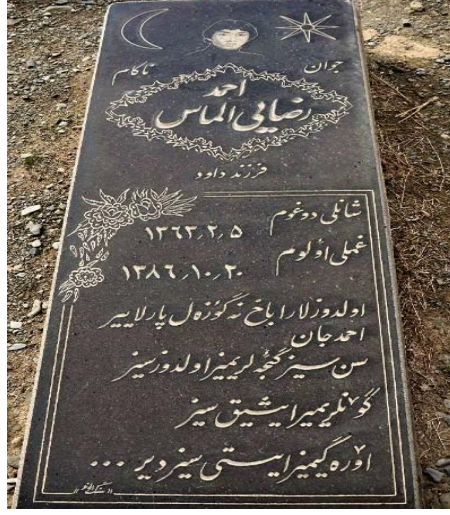 جوان ناکام
احمد
رضایی الماس
فرزند داود
شانلی دوغوم ۱۳۶۳٫۲٫۵
غملی اؤلوم ۱۳۸۶٫۱۰٫۲۰
اولدوزلارا باخ نه گؤزه ل پارلاییر
احمد جان
سن سیز گئجه لریمیز اولدوز سیز
گونلریمیز ایشیق سیز
اۆره گیمیز ایستی سیز دیر ...